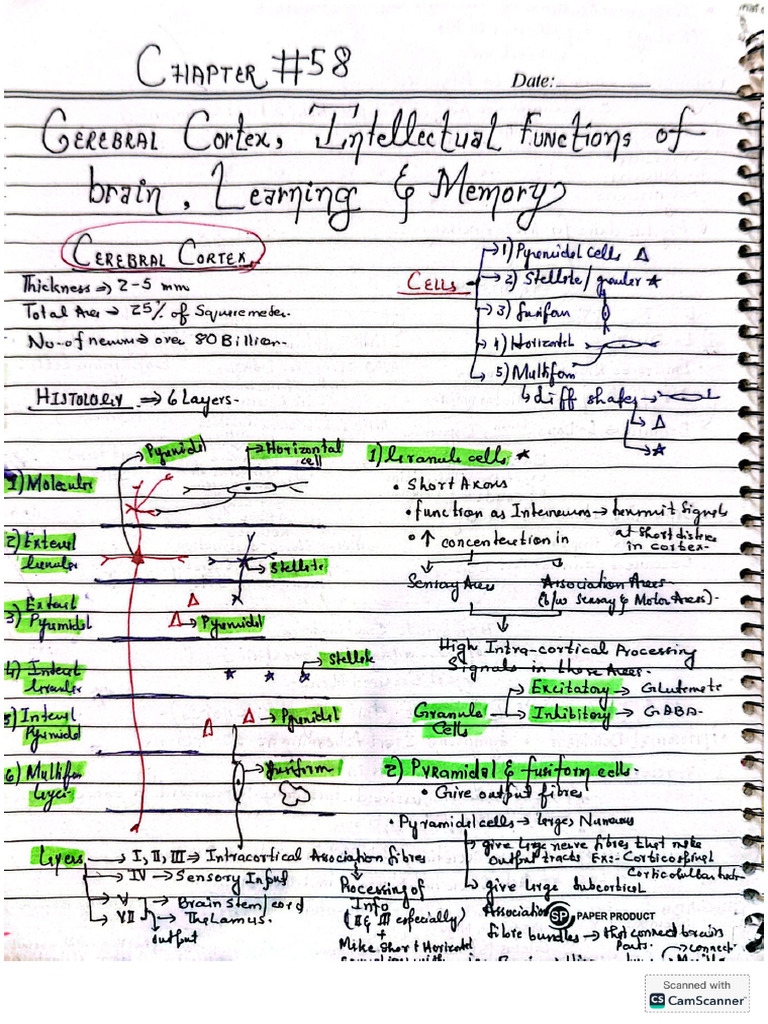 CHAPTER #58
Date:
CEREBRAL Cortex, Intellectual Functions of
brain, Learning & Memory
CEREBRAL CORTEX
Thickness ⇒ 2-5 mm
Total Area → 25% of Square meter.
No. of neurons → over 80 Billion.
HISTOLOGY ⇒ 6 Layers-
CELLS
1) Pyramidal cells △
2) Stellate/granular ★
3) fusiform
4) Horizontal
5) Multiform
↳ diff shapes →
→ △
→ ☆
Pyramidal
→ Horizontal cell
1) Molecular
2) External Granular
→ Stellate
3) External Pyramidal
△ → Pyramidal
4) Internal Granular
→ Stellate
5) Internal Pyramidal
△ → Pyramidal
6) Multiform layer
→ fusiform
Layers → I, II, III ⇒ Intracortical Association fibres
→ IV → Sensory Input
→ V → Brain stem/cord
→ VII → Thalamus.
output
Processing of
Info
(II & III especially)
+
Make Short Horizontal
1) Granule cells ★
• Short Axons
• function as Interneurons → transmit signals
at short distance
in cortex-
• ↑ concentration in
Sensory Area
Association Areas-
(b/w Sensory & Motor Areas)-
High Intra-cortical Processing
Signals in those Areas-
Granule Cells
→ Excitatory → Glutamate
→ Inhibitory → GABA-
2) Pyramidal & fusiform cells-
• Give output fibres
• Pyramidal cells → large, Numerous
→ give large nerve fibres that make
output tracts Ex:- Corticospinal
Corticobulbar
→ give large subcortical
Association
fibre bundles → that connect brain
Parts.
→ connect
SP PAPER PRODUCT
Scanned with
CS CamScanner